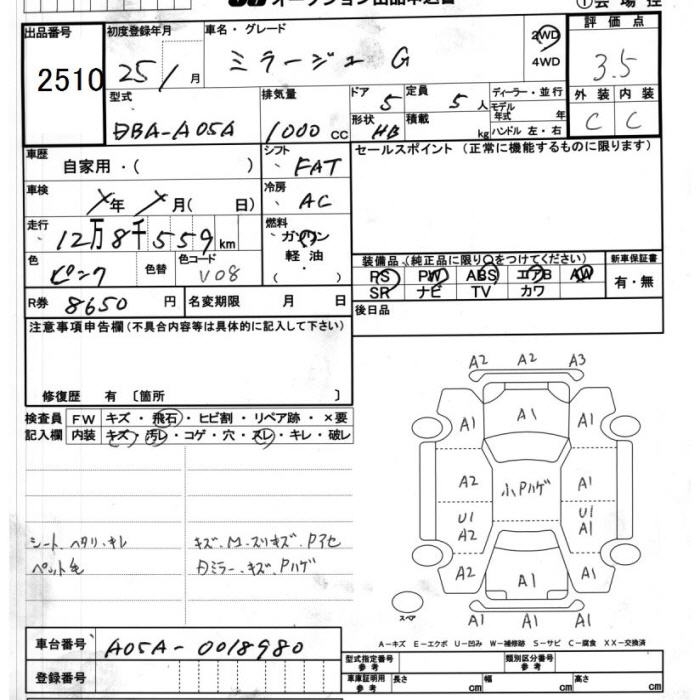 オークション出品申込書
①会場控
出品番号 初度登録年月 車名・グレード 評価点
2510 25 / 月 ミラージュ G 2WD 4WD 3.5
型式 排気量 ドア 5 定員 5 人 ディーラー・並行 外装 内装
モデル年式 年
DBA-A05A 1000 cc 形状 HB 積載 kg ハンドル 左・右 C C
車歴 シフト セールスポイント (正常に機能するものに限ります)
自家用・( ) FAT
車検 冷房
年 月( 日) AC
走行 燃料
12万8千559km ガソリン
色 色替 色コード 軽油 装備品 (純正品に限り○をつけてください) 新車保証書
ピンク V08 ・( ) PS PW ABS エアB AW 有・無
SR ナビ TV カワ
R券 8650 円 名変期限 月 日 後日品
注意事項申告欄 (不具合内容等は具体的に記入して下さい)
修復歴 有 〔箇所 〕
検査員 FW キズ・飛石・ヒビ割・リペア跡・×要
記入欄 内装 キズ・汚レ・コゲ・穴・スレ・キレ・破レ
シート、ヘタリ、キレ キズ、M.スリキズ、Pアセ
ペット毛 ミラー、キズ、Pハゲ
A2 A2 A3
A1 A1 A1
A2 小Pハゲ A1
U1 U1
A2 A1
A2 A1 A1
A1 A1 A1
スペア
A-キズ E-エクボ U-凹み W-補修跡 S-サビ C-腐食 XX-交換済
車台番号 A05A-0018980
登録番号
型式指定番号 参考 類別区分番号 参考
車庫証明用 参考 長さ cm 幅 cm 高さ cm